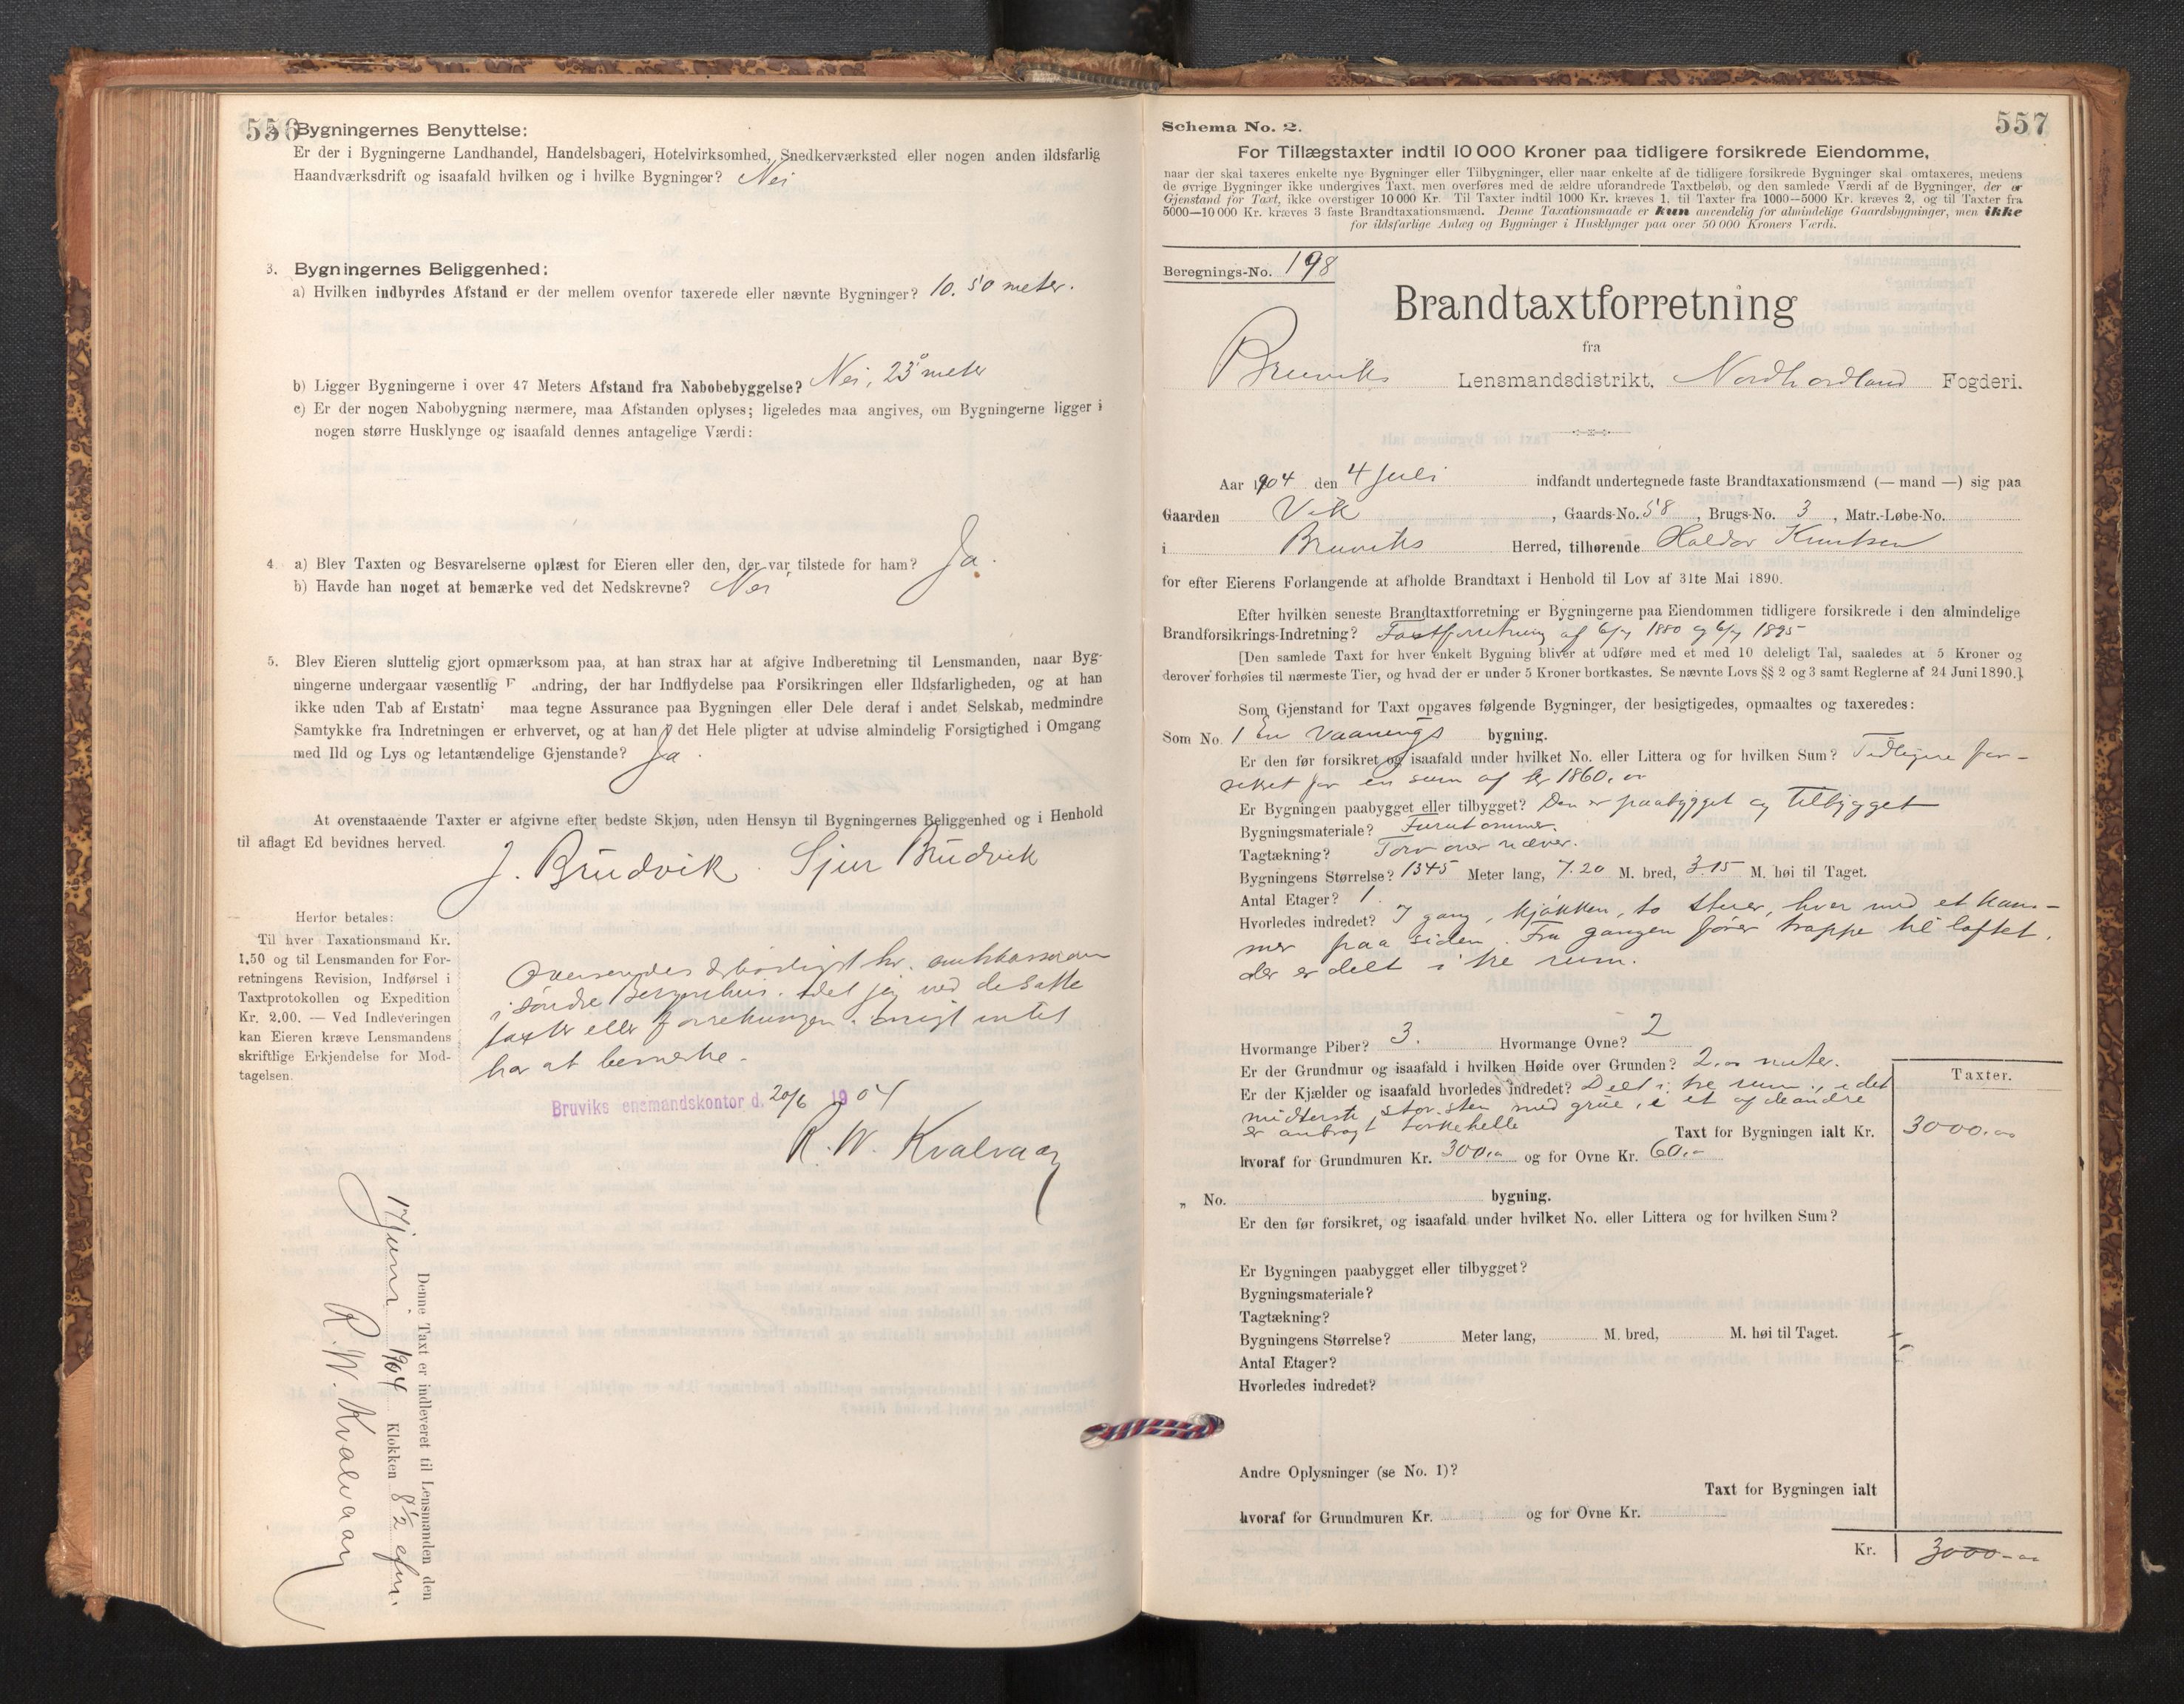 556
Bygningernes Benyttelse:
Er der i Bygningerne Landhandel, Handelsbageri, Hotelvirksomhed, Snedkerværksted eller nogen anden ildsfarlig
Haandværksdrift og isaafald hvilken og i hvilke Bygninger? Nei
3. Bygningernes Beliggenhed:
a) Hvilken indbyrdes Afstand er der mellem ovenfor taxerede eller nævnte Bygninger? 10.50 meter.
b) Ligger Bygningerne i over 47 Meters Afstand fra Nabobebyggelse? Nei, 23 meter
c) Er der nogen Nabobygning nærmere, maa Afstanden oplyses; ligeledes maa angives, om Bygningerne ligger i
nogen større Husklynge og isaafald dennes antagelige Værdi:
4 a) Blev Taxten og Besvarelserne oplæst for Eieren eller den, der var tilstede for ham? Ja.
b) Havde han noget at bemærke ved det Nedskrevne? Nei
5. Blev Eieren sluttelig gjort opmærksom paa, at han strax har at afgive Indberetning til Lensmanden, naar Byg-
ningerne undergaar væsentlig F andring, der har Indflydelse paa Forsikringen eller Ildsfarligheden, og at han
ikke uden Tab af Erstatn maa tegne Assurance paa Bygningen eller Dele deraf i andet Selskab, medmindre
Samtykke fra Indretningen er erhvervet, og at han i det Hele pligter at udvise almindelig Forsigtighed i Omgang
med Ild og Lys og letantændelige Gjenstande? Ja.
At ovenstaaende Taxter er afgivne efter bedste Skjøn, uden Hensyn til Bygningernes Beliggenhed og i Henhold
til aflagt Ed bevidnes herved.
J. Brudvik. Sjur Brudvik
Herfor betales:
Til hver Taxationsmand Kr.
1,50 og til Lensmanden for For-
retningens Revision, Indførsel i
Taxtprotokollen og Expedition
Kr. 2.00. — Ved Indleveringen
kan Eieren kræve Lensmandens
skriftlige Erkjendelse for Mod-
tagelsen.
Oversendes ærbødigst hr. amtskassereren
i Søndre Bergenhus. Idet jeg ved de satte
taxter eller forretningen øvrigt intet
har at bemerke.
Bruviks ensmandskontor d. 20/6 1904
R. W. Kvalvaag
Denne Taxt er indleveret til Lensmanden den
17 juni 1904 Klokken 8 1/2 efm.
R. W. Kvalvaag
557
Schema No. 2.
For Tillægstaxter indtil 10 000 Kroner paa tidligere forsikrede Eiendomme,
naar der skal taxeres enkelte nye Bygninger eller Tilbygninger, eller naar enkelte af de tidligere forsikrede Bygninger skal omtaxeres, medens
de øvrige Bygninger ikke undergives Taxt, men overføres med de ældre uforandrede Taxtbeløb, og den samlede Værdi af de Bygninger, der er
Gjenstand for Taxt, ikke overstiger 10 000 Kr. Til Taxter indtil 1000 Kr. kræves 1, til Taxter fra 1000—5000 Kr. kræves 2, og til Taxter fra
5000—10 000 Kr. kræves 3 faste Brandtaxationsmænd. Denne Taxationsmaade er kun anvendelig for almindelige Gaardsbygninger, men ikke
for ildsfarlige Anlæg og Bygninger i Husklynger paa over 50 000 Kroners Værdi.
Beregnings-No. 198
Brandtaxtforretning
fra
Bruviks Lensmandsdistrikt, Nordhordland Fogderi.
Aar 1904 den 4 Juli indfandt undertegnede faste Brandtaxationsmænd (— mand —) sig paa
Gaarden Vik, Gaards-No. 58, Brugs-No. 3, Matr.-Løbe-No.
i Bruviks Herred, tilhørende Haldor Knutsen
for efter Eierens Forlangende at afholde Brandtaxt i Henhold til Lov af 31te Mai 1890.
Efter hvilken seneste Brandtaxtforretning er Bygningerne paa Eiendommen tidligere forsikrede i den almindelige
Brandforsikrings-Indretning? Taxtforretning af 6/7 1880 og 6/7 1895
[Den samlede Taxt for hver enkelt Bygning bliver at udføre med et med 10 deleligt Tal, saaledes at 5 Kroner og
derover forhøies til nærmeste Tier, og hvad der er under 5 Kroner bortkastes. Se nævnte Lovs §§ 2 og 3 samt Reglerne af 24 Juni 1890.]
Som Gjenstand for Taxt opgaves følgende Bygninger, der besigtigedes, opmaaltes og taxeredes:
Som No. 1 En Vaanings bygning.
Er den før forsikret og isaafald under hvilket No. eller Littera og for hvilken Sum? Tidligere for-
sikret for en sum af kr 1860,00
Er Bygningen paabygget eller tilbygget? Den er paabygget og tilbygget
Bygningsmateriale? Furutømmer.
Tagtækning? Torv over næver.
Bygningens Størrelse? 1345 Meter lang, 7.20 M. bred, 3.15 M. høi til Taget.
Antal Etager? 1
Hvorledes indredet? I gang, kjøkken, to stuer, hver med et kam-
mer paa siden. Fra gangen fører trappe til loftet,
der er delt i tre rum.
Hvormange Piber? 3. Hvormange Ovne? 2
Er der Grundmur og isaafald i hvilken Høide over Grunden? 2,00 meter.
Er der Kjælder og isaafald hvorledes indredet? Delt i tre rum, i det
midterste skorsten med grue, i et af de andre
er anbragt tørkehelle
Taxter.
Taxt for Bygningen ialt Kr. 3000.00
hvoraf for Grundmuren Kr. 300,00 og for Ovne Kr. 60,-
„ No. bygning.
Er den før forsikret, og isaafald under hvilket No. eller Littera og for hvilken Sum?
Er Bygningen paabygget eller tilbygget?
Bygningsmateriale?
Tagtækning?
Bygningens Størrelse? Meter lang, M. bred, M. høi til Taget.
Antal Etager?
Hvorledes indredet?
Andre Oplysninger (se No. 1)?
Taxt for Bygningen ialt
hvoraf for Grundmuren Kr. og for Ovne Kr.
Kr. 3000-00